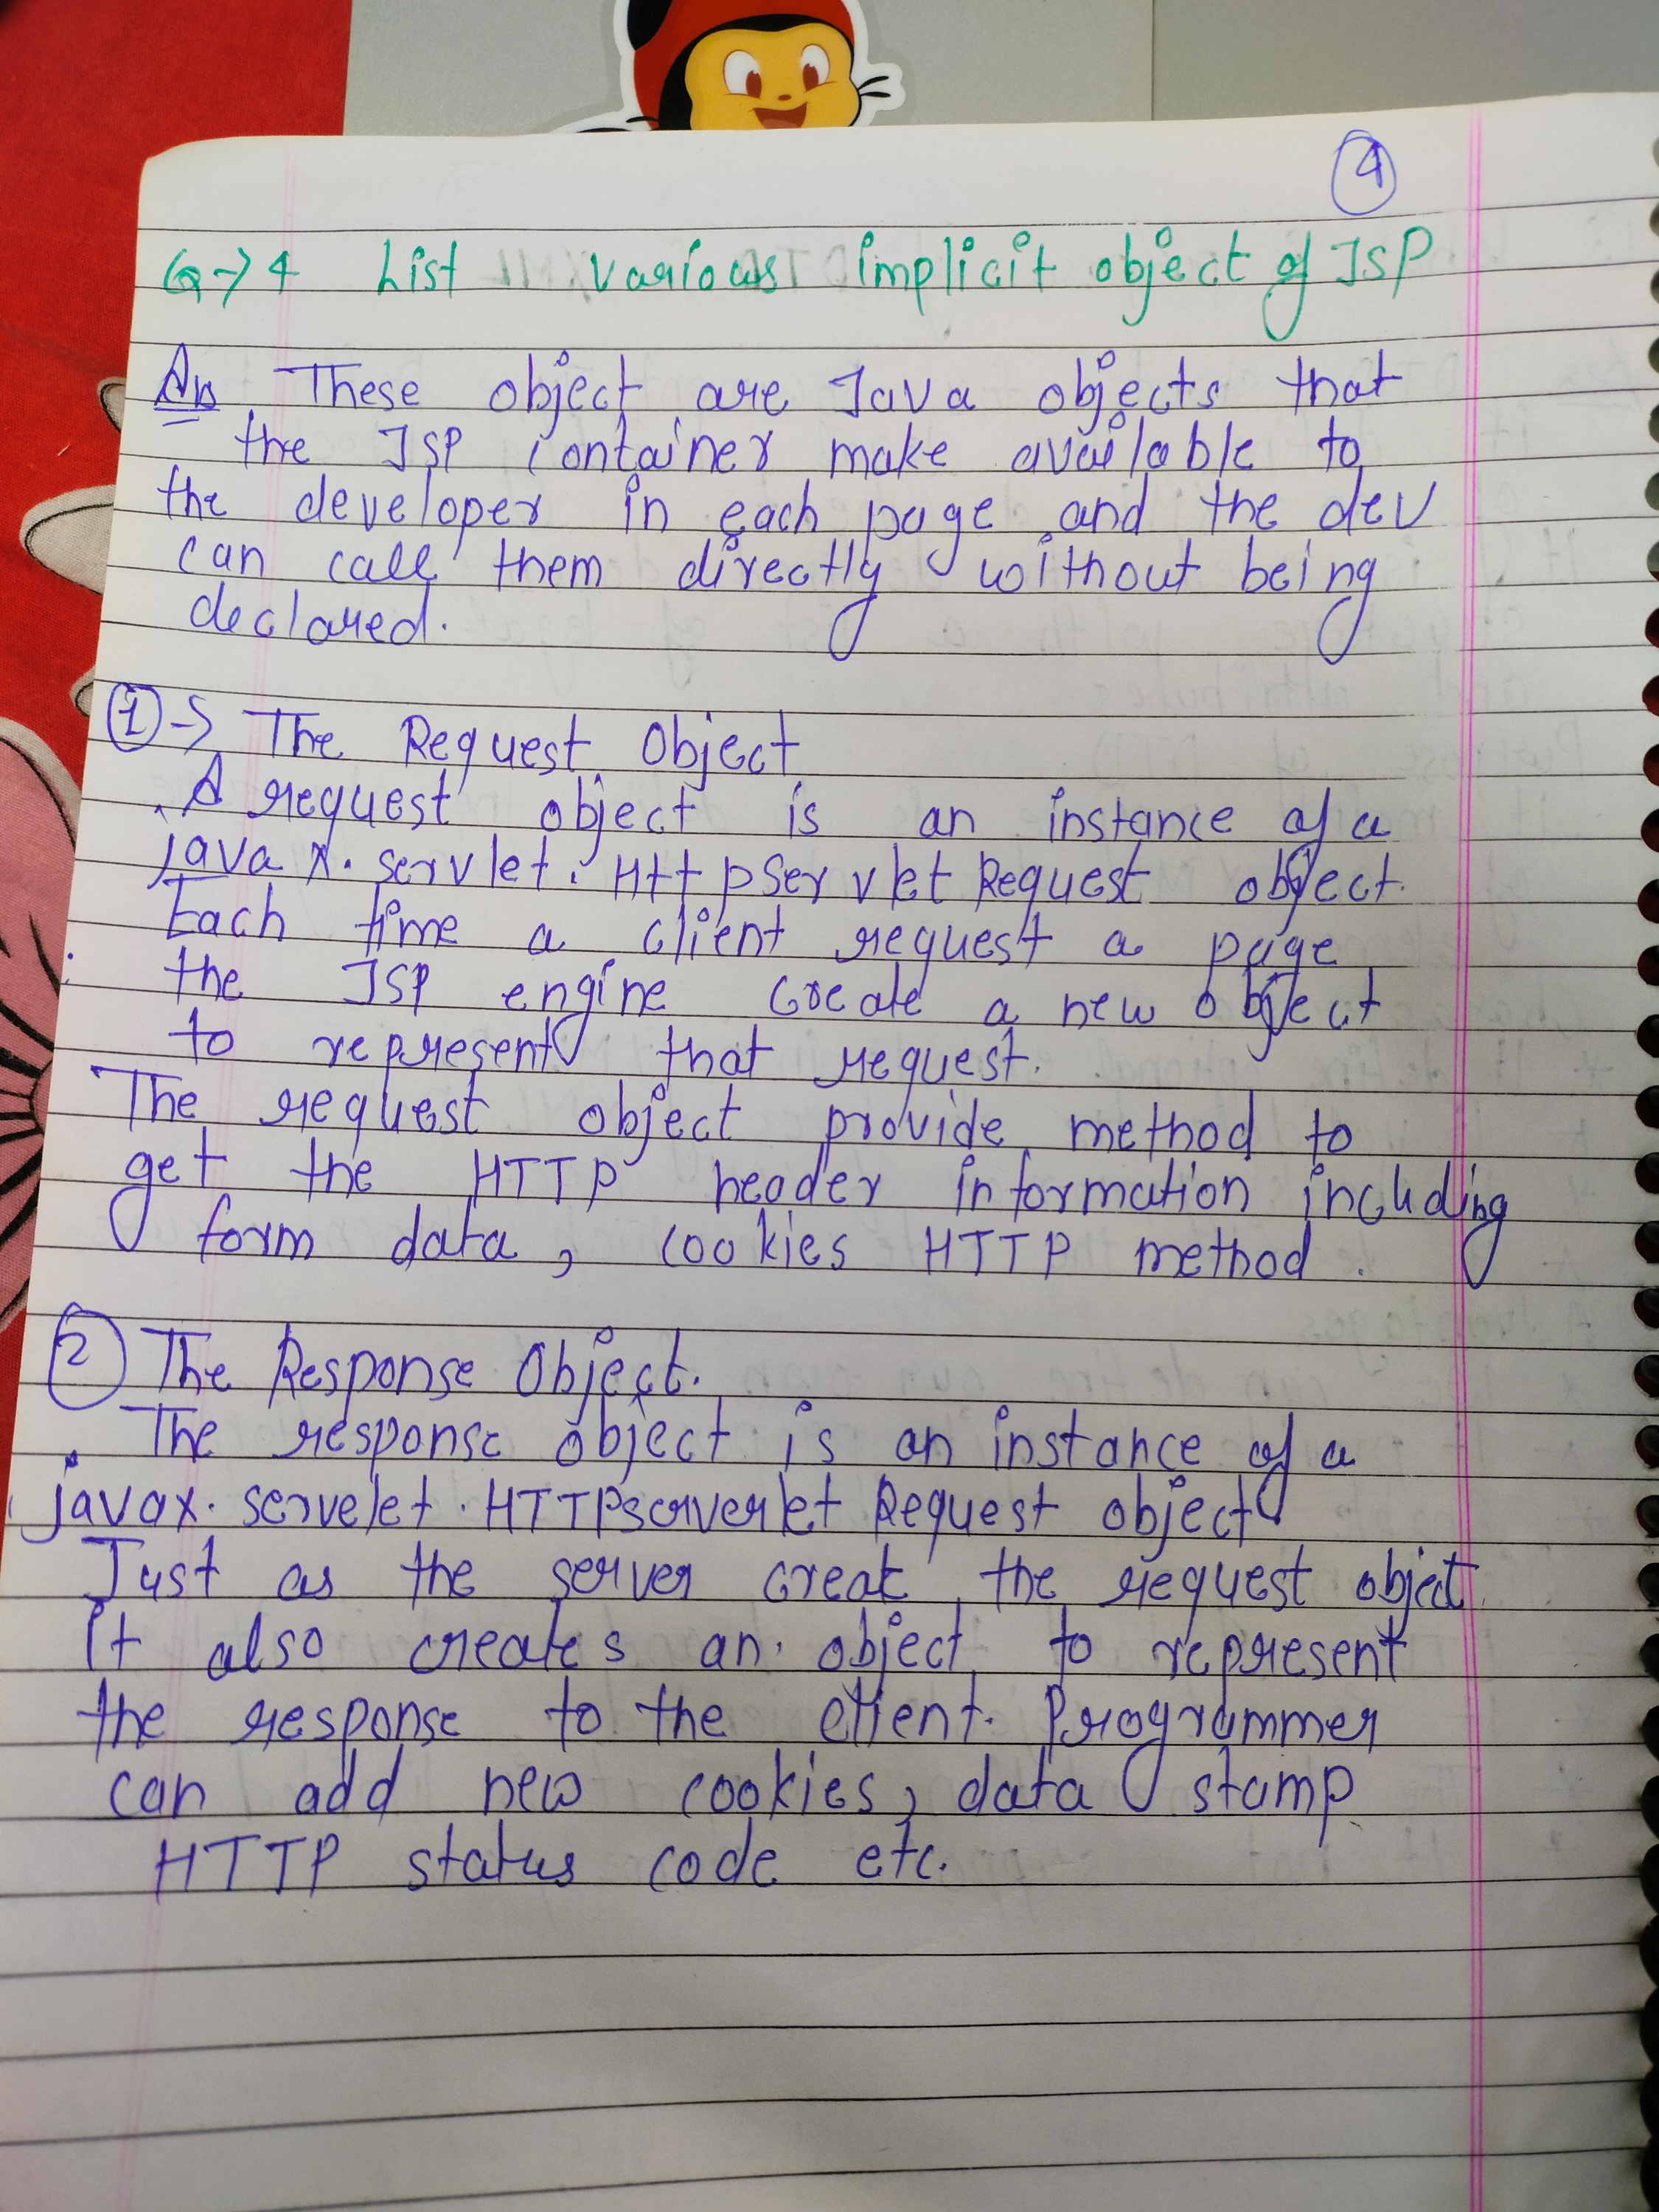 4
Q→4 List various implicit object of JSP
Ans These object are Java objects that
the JSP container make available to
the developer in each page and the dev
can call them directly without being
declared.
1 → The Request Object
. A request object is an instance of a
java x. servlet. HttpServletRequest object.
Each time a client request a page
the JSP engine create a new object
to represent that request.
The request object provide method to
get the HTTP header information including
form data, cookies HTTP method.
2 The Response Object.
. The response object is an instance of a
javax. servelet. HTTPserverlet Request object
Just as the server creat the request object
it also creates an object to represent
the response to the client. Programmer
can add new cookies, data stamp
HTTP status code etc.